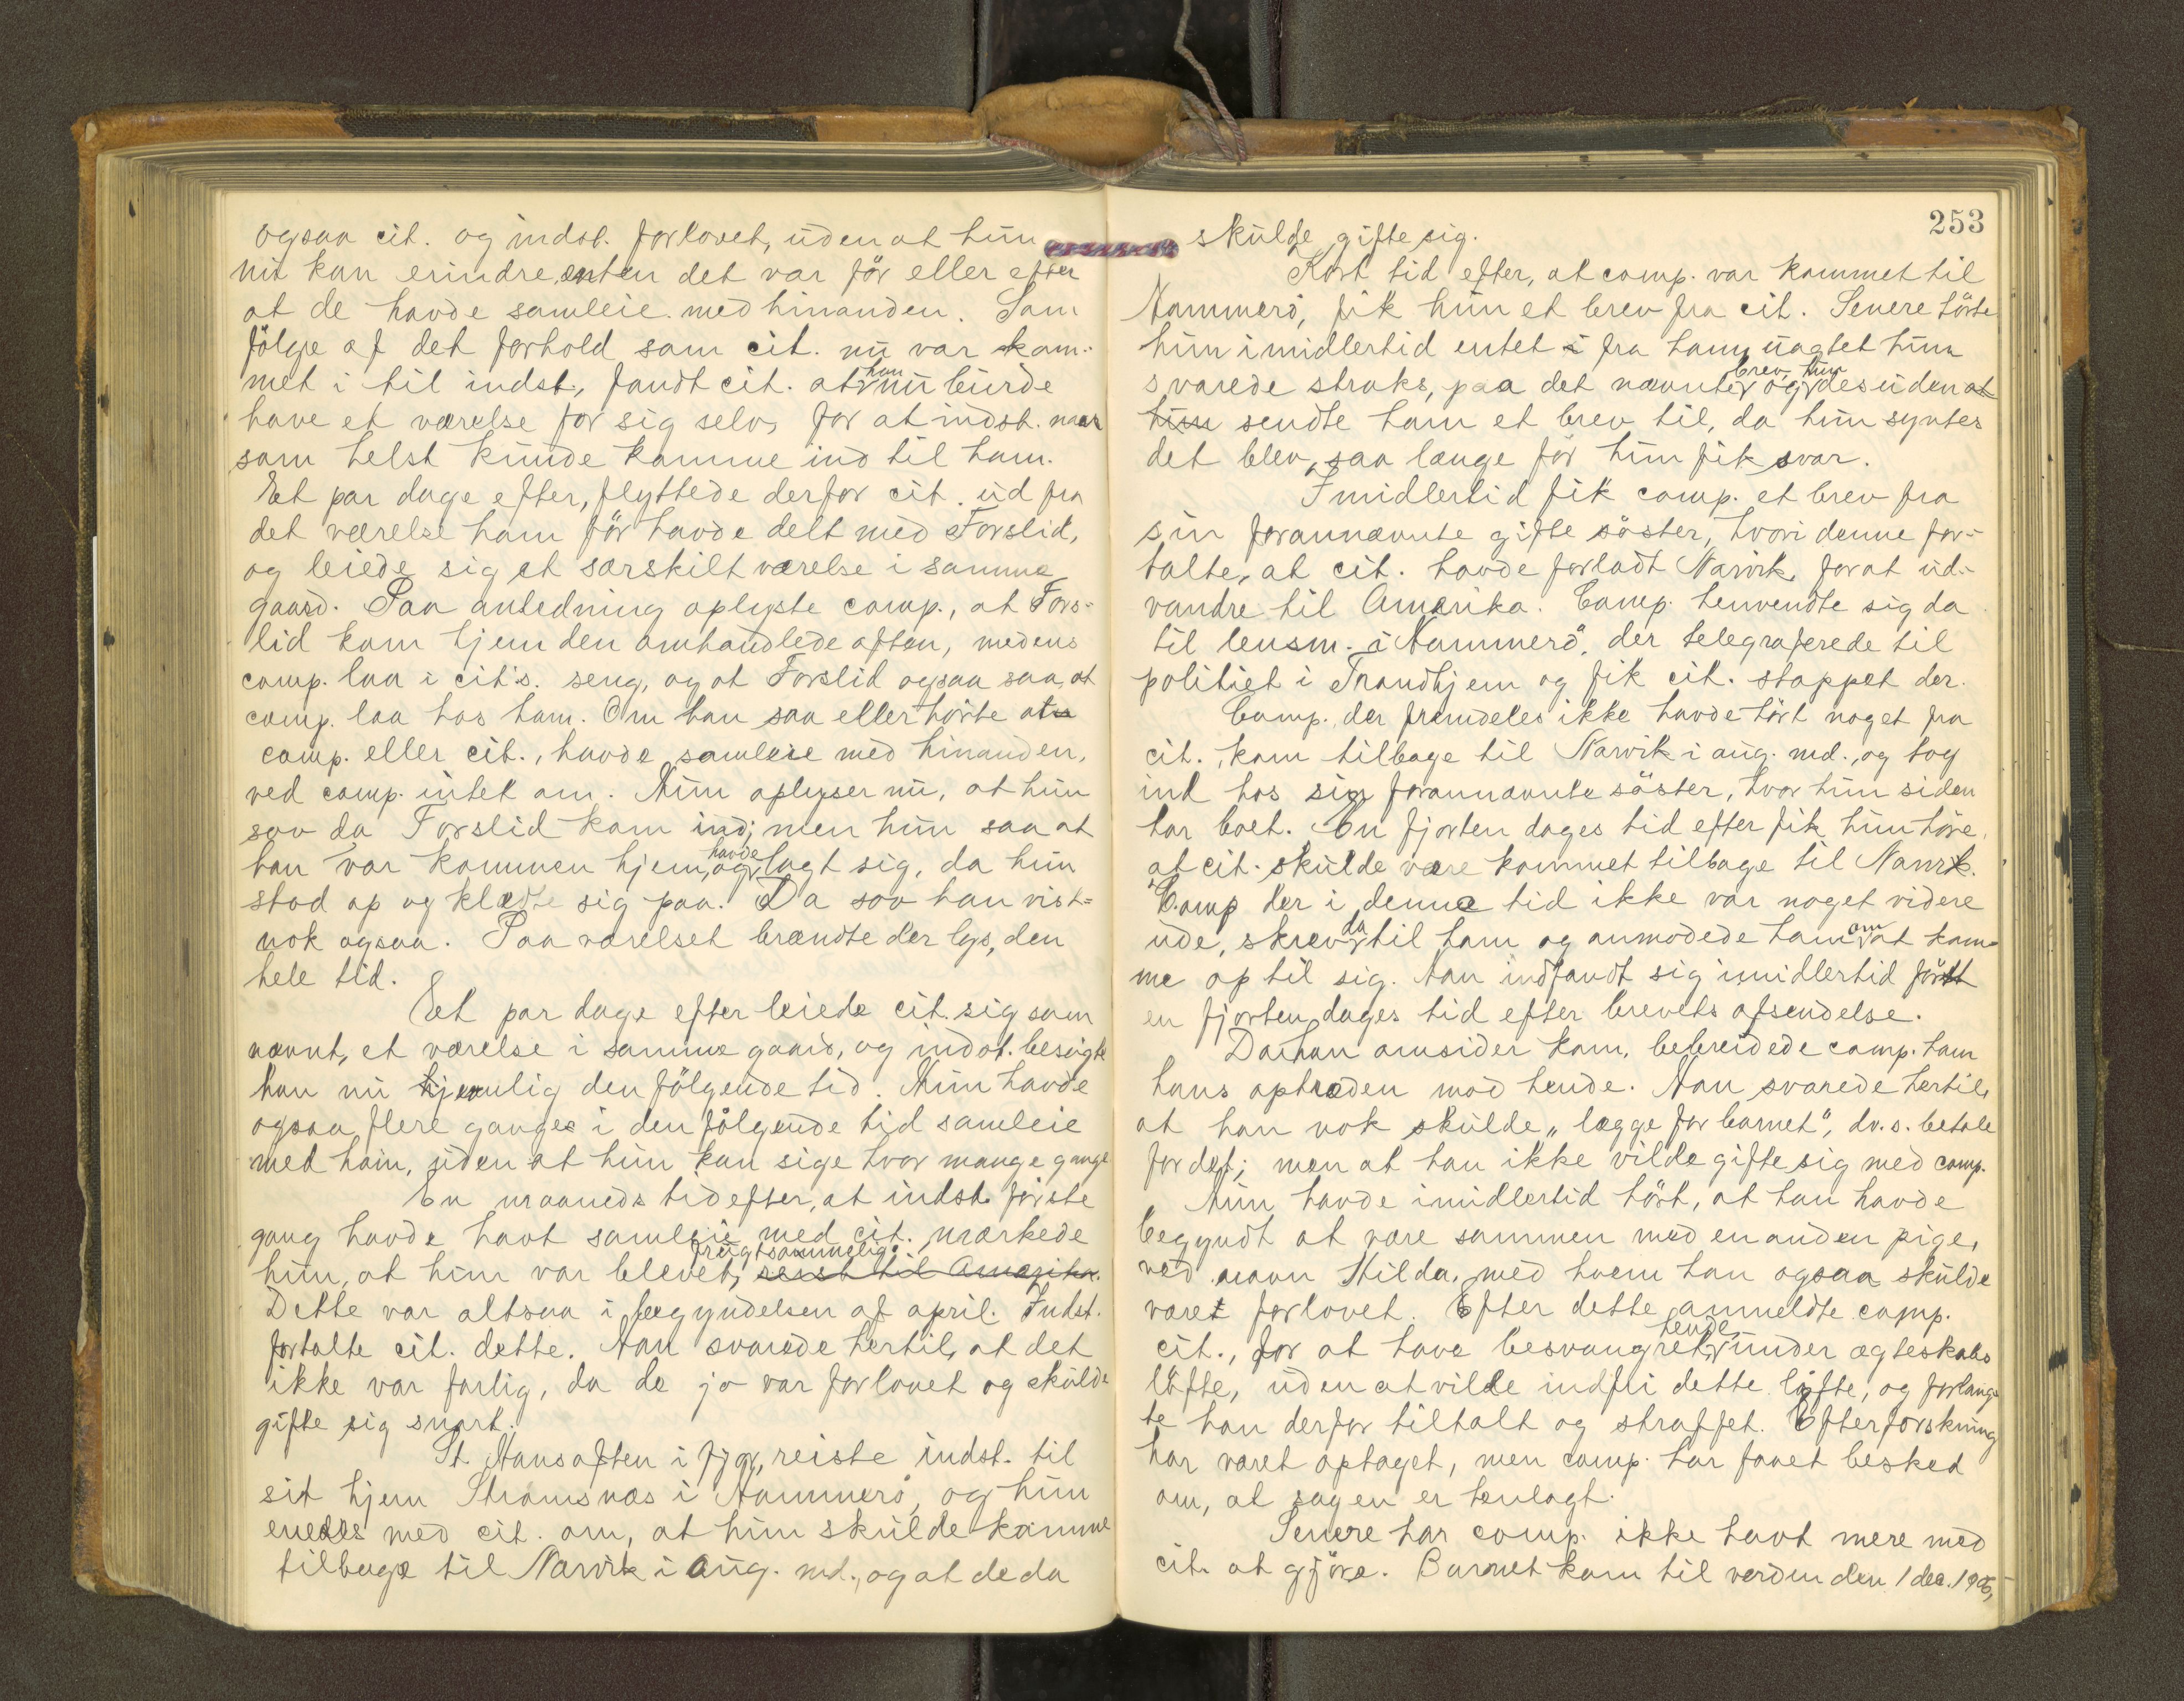 ogsaa cit. og indst. forlovet, uden at hun
nu kan erindre, enten det var før eller efter
at de havde samleie med hinanden. Som
følge af det forhold som cit. nu var kom-
met i til indst., fandt cit. at han nu burde
have et værelse for sig selv, for at indst. naar
som helst kunde komme ind til ham.
Et par dage efter, flyttede derfor cit. ud fra
det værelse ham før havde delt med Forslid,
og leiede sig et særskilt værelse i samme
gaard. Paa anledning oplyste comp., at Fors-
lid kom hjem den omhandlede aften, medens
comp. laa i cit's. seng, og at Forslid ogsaa saa, at
comp. laa hos ham. Om han saa eller hørte at
comp. eller cit., havde samleie med hinanden,
ved comp. intet om. Hun oplyser nu, at hun
sov da Forslid kom ind; men hun saa at
han var kommen hjem, og havde lagt sig, da hun
stod op og klædte sig paa. Da sov han vist-
nok ogsaa. Paa værelset brændte der lys, den
hele tid.
Et par dage efter leiede cit. sig som
nævnt, et værelse i samme gaard, og indst. besøgte
han nu hjemlig den følgende tid. Hun havde
ogsaa flere ganges i den følgende tid samleie
med ham, uden at hun kan sige hvor mange gange
En maaneds tid efter, at indst. første
gang havde havt samleie med cit. mærkede
hun, at hun var blevet, frugtsommelig. reist til Amerika.
Dette var altsaa i begyndelsen af april. Indst.
fortalte cit. dette. Han svarede hertil, at det
ikke var farlig, da de jo var forlovet og skulde
gifte sig snart.
St. Hansaften i fjor, reiste indst. til
sit hjem Strømsnæs i Hammerø, og hun
enedes med cit. om, at hun skulde komme
tilbage til Narvik i Aug. md., og at de da
253
skulde gifte sig.
Kort tid efter, at comp. var kommet til
Hammerø, fik hun et brev fra cit. Senere hørte
hun imidlertid intet i fra ham, uagtet hun
svarede straks, paa det nævnte brev, og hun desuden at
hun sendte ham et brev til, da hun syntes
det blev saa længe før hun fik svar.
Imidlertid fik comp. et brev fra
sin forannævnte gifte søster, hvori denne for-
talte, at cit. havde forladt Narvik, for at ud-
vandre til Amerika. Comp. henvendte sig da
til lensm. i Hammerø, der telegraferede til
politiet i Trondhjem og fik cit. stoppet der.
Comp., der fremdeles ikke havde hørt noget fra
cit., kom tilbage til Narvik i aug. md., og tog
ind hos sin forannævnte søster, hvor hun siden
har boet. En fjorten dages tid efter fik hun høre,
at cit. skulde være kommet tilbage til Narvik.
Comp der i denne tid ikke var noget videre
ude, skrev da til ham og anmodede ham om at kom-
me op til sig. Han indfandt sig imidlertid først
en fjorten dages tid efter brevets afsendelse.
Da han omsider kom, bebreidede comp. ham
hans optræden mod hende. Han svarede hertil,
at han nok skulde „lægge for barnet", dv. s. betale
for det; men at han ikke vilde gifte sig med comp.
Hun havde imidlertid hørt, at han havde
begyndt at være sammen med en anden pige,
ved navn Hilda, med hvem han ogsaa skulde
været forlovet. Efter dette anmeldte comp.
cit., for at have besvangret hende, under ægteskabs
løfte, uden at vilde indfri dette løfte, og forlang-
te han derfor tiltalt og straffet. Efterforskning
har været optaget, men comp. har faaet besked
om, at sagen er henlagt.
Senere har comp. ikke havt mere med
cit. at gjøre. Barnet kom til verden den 1 dec. 1906,